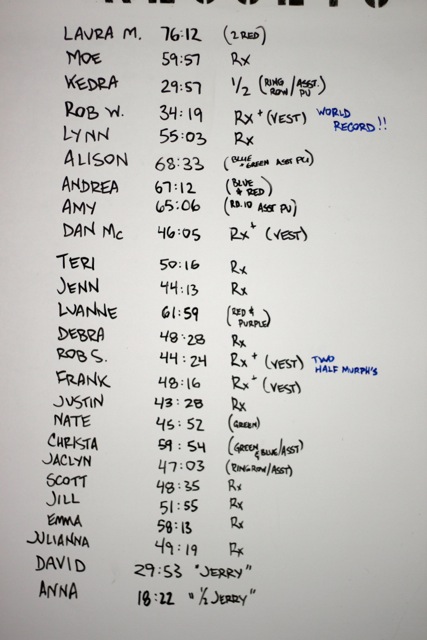 LAURA M. 76:12 (2 RED)
MOE 59:57 Rx
KEDRA 29:57 1/2 (RING ROW/ASST. PU)
ROB W. 34:19 Rx+ (VEST) WORLD RECORD!!
LYNN 55:03 Rx
ALISON 68:33 (BLUE + GREEN ASST PU)
ANDREA 67:12 (BLUE & RED)
AMY 65:06 (RD.10 ASST PU)
DAN Mc 46:05 Rx+ (VEST)
TERI 50:16 Rx
JENN 44:13 Rx
LUANNE 61:59 (RED & PURPLE)
DEBRA 48:28 Rx
ROB S. 44:24 Rx+ (VEST) TWO HALF MURPH'S
FRANK 48:16 Rx+ (VEST)
JUSTIN 43:28 Rx
NATE 45:52 (GREEN)
CHRISTA 59:54 (GREEN & BLUE/ASST)
JACLYN 47:03 (RINGROW/ASST)
SCOTT 48:35 Rx
JILL 51:55 Rx
EMMA 58:13 Rx
JULIANNA 49:19 Rx
DAVID 29:53 "JERRY"
ANNA 18:22 "1/2 JERRY"